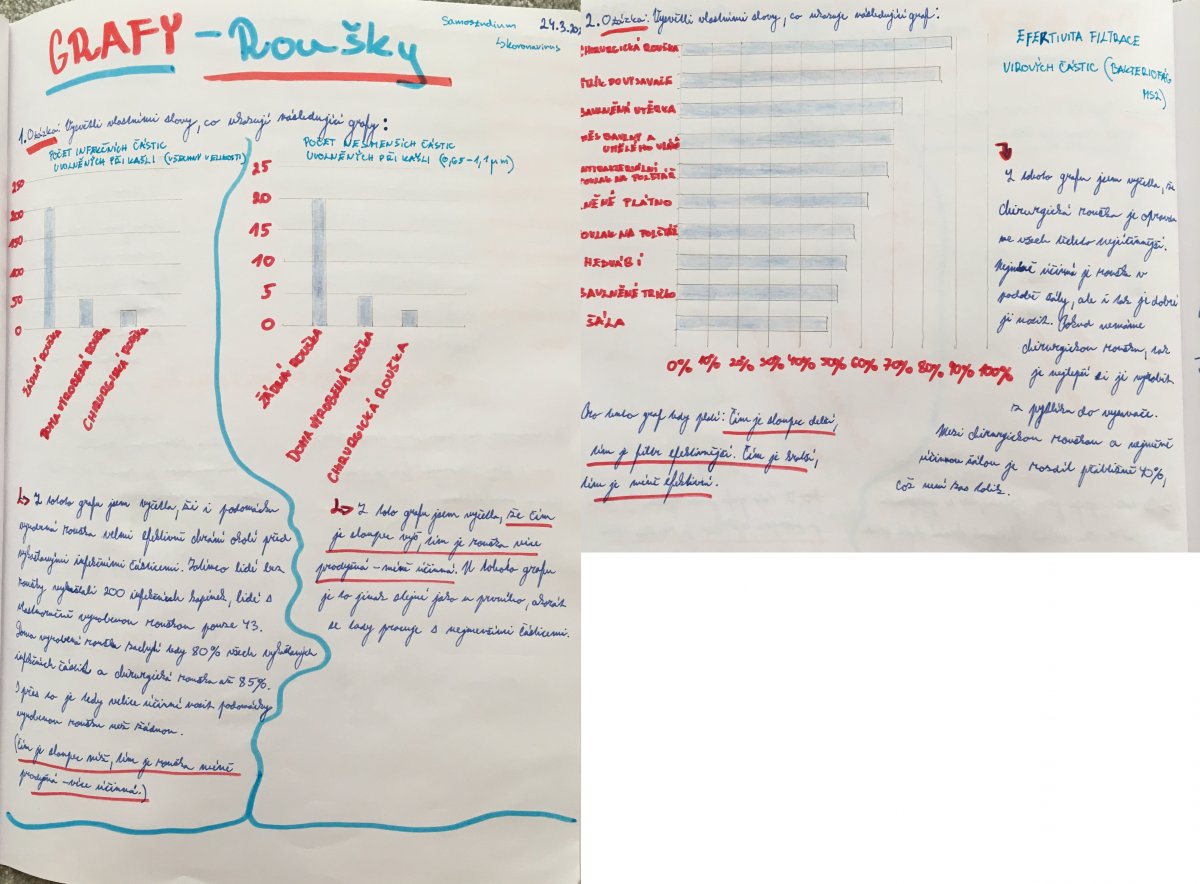 GRAFY - Roušky
Samostudium
↳ koronavirus
24.3.
1. Otázka: Vysvětli vlastními slovy, co ukazují následující grafy:
POČET INFEKČNÍCH ČÁSTIC
UVOLNĚNÝCH PŘI KAŠLI (VŠECHNY VELIKOSTI)
250
200
150
100
50
0
ŽÁDNÁ ROUŠKA
DOMA VYROBENÁ ROUŠKA
CHIRURGICKÁ ROUŠKA
POČET NEJMENŠÍCH ČÁSTIC
UVOLNĚNÝCH PŘI KAŠLI (0,65-1,1 μm)
25
20
15
10
5
0
ŽÁDNÁ ROUŠKA
DOMA VYROBENÁ ROUŠKA
CHIRURGICKÁ ROUŠKA
↳ Z tohoto grafu jsem vyčetla, že i podomácku
vyrobená rouška velmi efektivně chrání okolí před
vykašlanými infekčními částicemi. Zatímco lidé bez
roušky vykašlali 200 infekčních kapének, lidé s
vlastnoručně vyrobenou rouškou pouze 43.
Doma vyrobená rouška zachytí tedy 80% všech vykašlaných
infekčních částic a chirurgická rouška až 85%.
I přes to je tedy velice účinné nosit podomácky
vyrobenou roušku než žádnou.
(Čím je sloupec nižší, tím je rouška méně
prodyšná - více účinná.)
↳ Z toho grafu jsem vyčetla, že čím
je sloupec vyš, tím je rouška více
prodyšná - méně účinná. U tohoto grafu
je to jinak stejné jako u prvního, akorát
se tady pracuje s nejmenšími částicemi.
2. Otázka: Vysvětli vlastními slovy, co ukazuje následující graf:
EFEKTIVITA FILTRACE
VIROVÝCH ČÁSTIC (BAKTERIOFÁG
MS2)
CHIRURGICKÁ ROUŠKA
DO VYSAVAČE
BAVLNĚNÁ UTĚRKA
BAVLNY A
UMĚLÉHO
ANTIBAKTERIÁLNÍ
POVLAK NA POLŠTÁŘ
LNĚNÉ PLÁTNO
POVLAK NA POLŠTÁŘ
HEDVÁBÍ
BAVLNĚNÉ TRIČKO
ŠÁLA
0% 10% 20% 30% 40% 50% 60% 70% 80% 90% 100%
Pro tento graf tedy platí: Čím je sloupec delší,
tím je filtr efektivnější. Čím je kratší,
tím je méně efektivní.
↳ Z tohoto grafu jsem vyčetla, že
chirurgická rouška je opravdu
ze všech těchto nejúčinnější.
Nejméně účinná je rouška v
podobě šály, ale i tak je dobré
ji nosit. Pokud nemáme
chirurgickou roušku, tak
je nejlepší si ji vyrobit
z pytlíku do vysavače.
Mezi chirurgickou rouškou a nejméně
účinnou šálou je rozdíl přibližně 40%,
což není zas tolik.